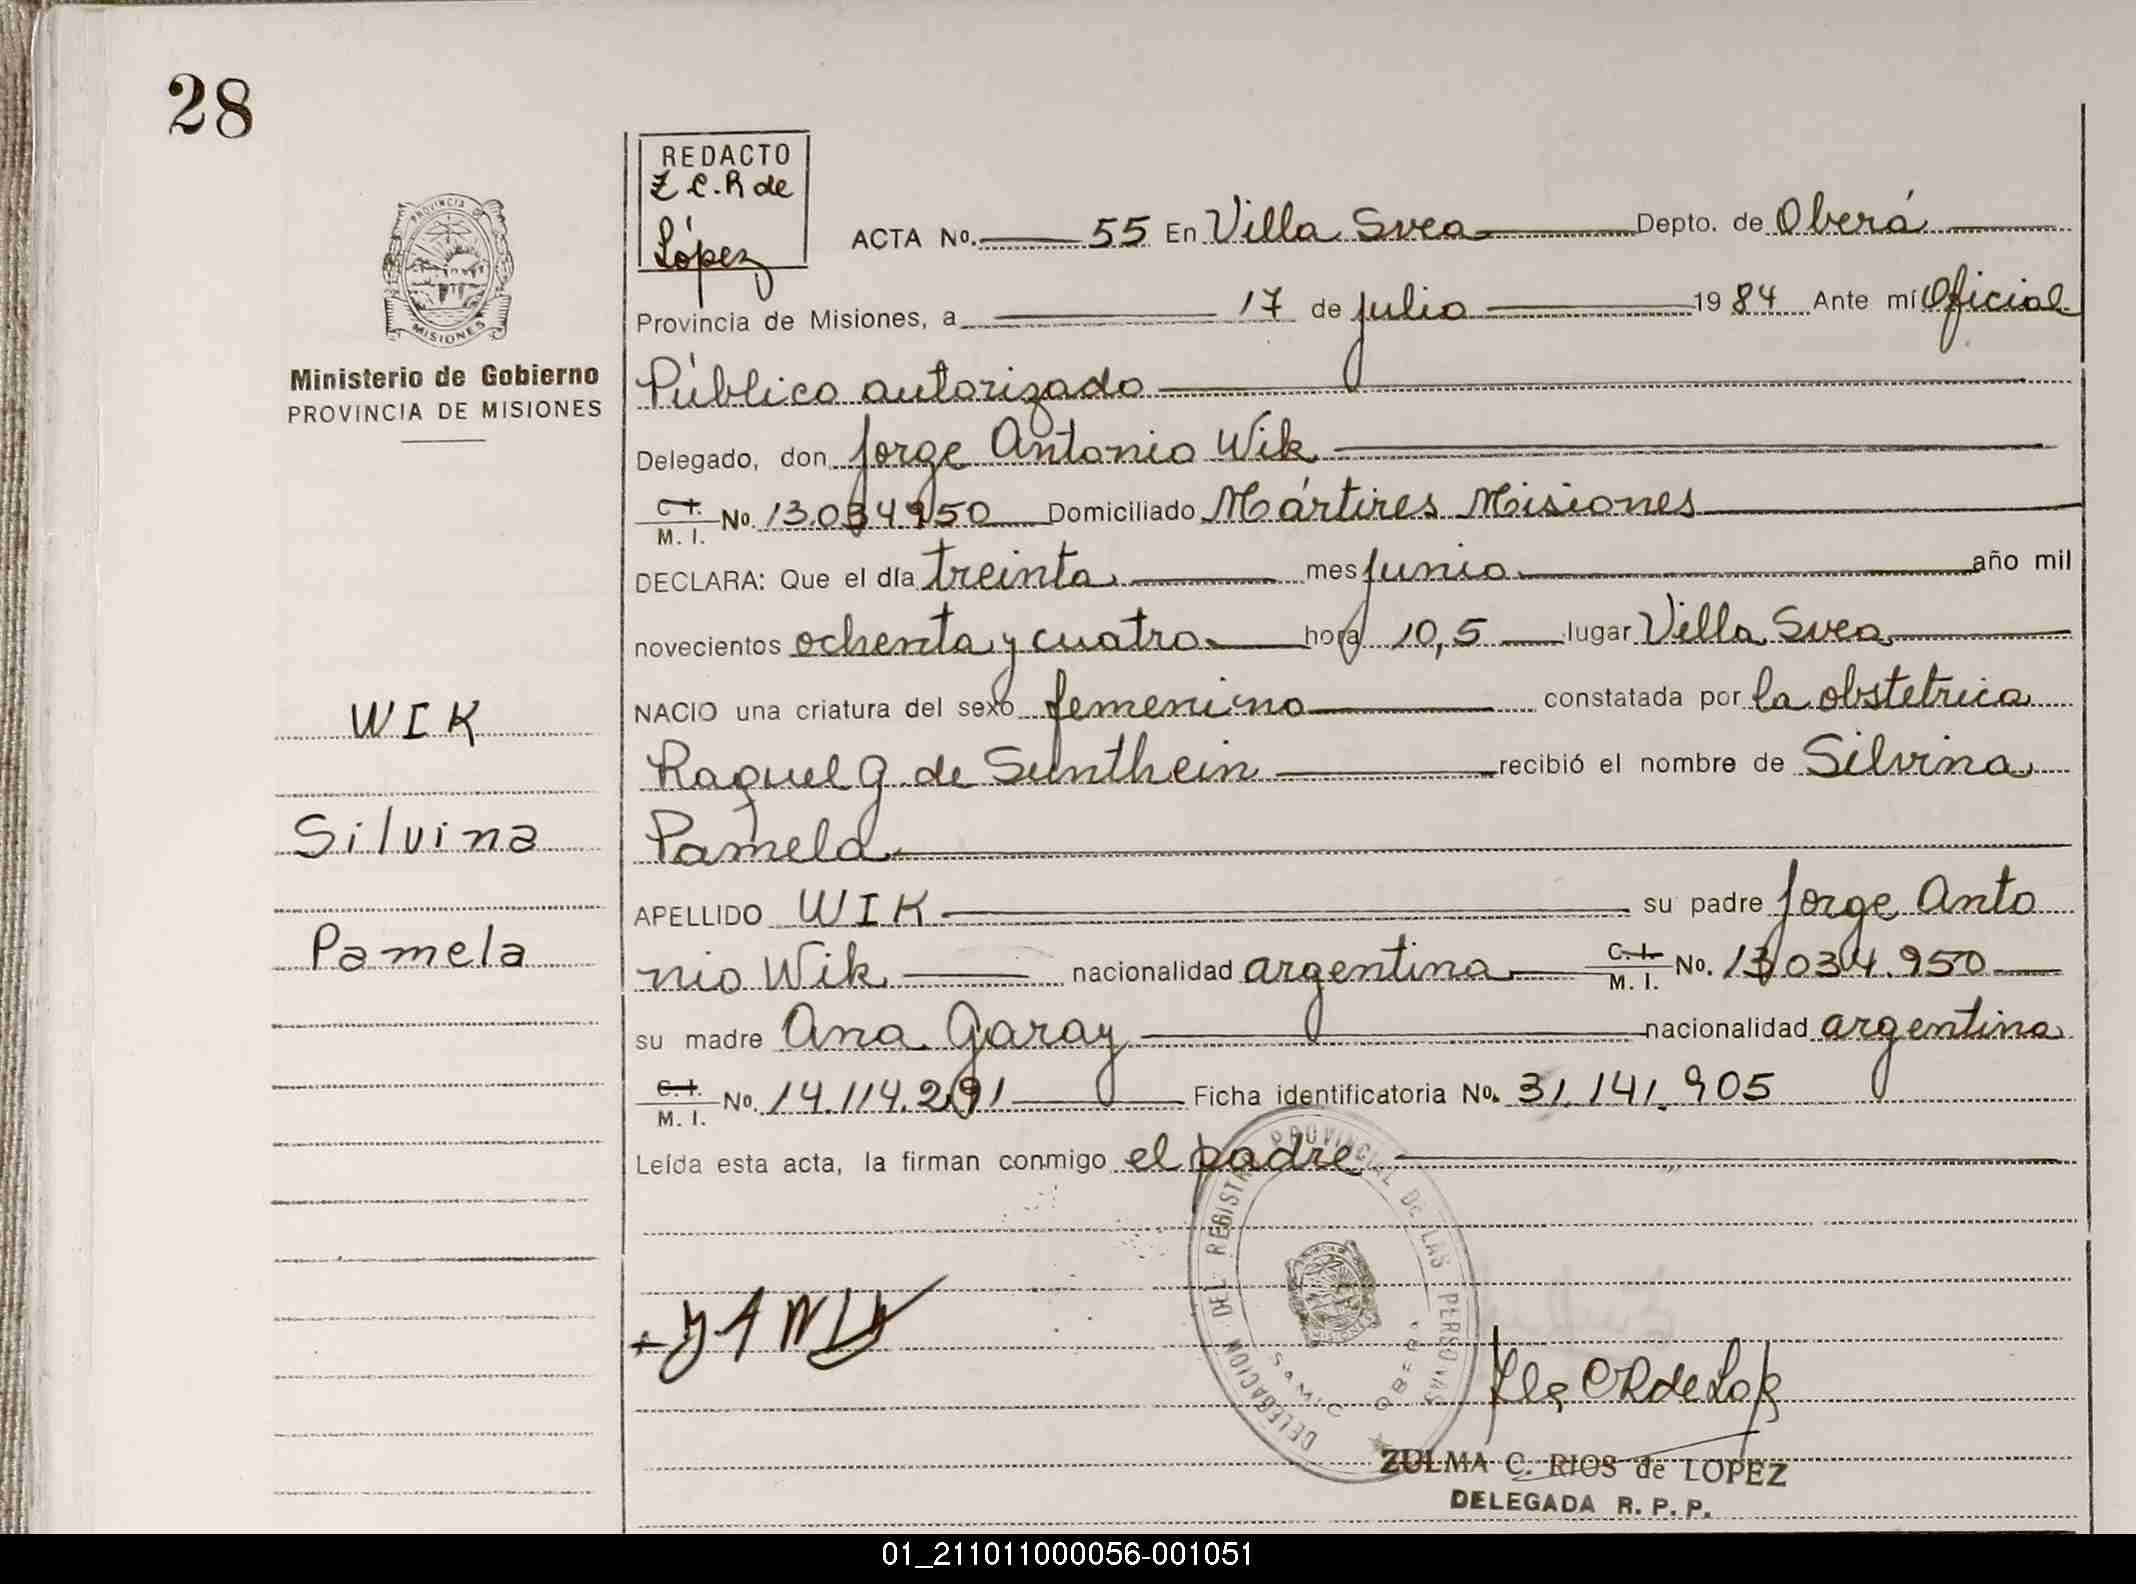 28
REDACTO
Z C. R de
López
PROVINCIA DE
MISIONES
Ministerio de Gobierno
PROVINCIA DE MISIONES
ACTA No. 55 En Villa Svea Depto. de Oberá
Provincia de Misiones, a 17 de julio 1984 Ante mí Oficial
Público autorizado
Delegado, don Jorge Antonio Wik
C. I. M. I. No. 13.034950 Domiciliado Mártires Misiones
DECLARA: Que el día treinta mes junio año mil
novecientos ochenta y cuatro hora 10,5 lugar Villa Svea
NACIO una criatura del sexo femenino constatada por la obstetrica
Raquel G. de Sunthein recibió el nombre de Silvina
Pamela
APELLIDO WIK su padre Jorge Anto
nio Wik nacionalidad argentina C. I. M. I. No. 13.034.950
su madre Ana Garay nacionalidad argentina
C. I. M. I. No. 14.114.291 Ficha identificatoria No. 31.141.905
Leída esta acta, la firman conmigo el padre
WIK
Silvina
Pamela
DELEGACION DEL REGISTRO PROVINCIAL DE LAS PERSONAS
SAMIC OBERA
ZULMA C. RIOS de LOPEZ
DELEGADA R. P. P.
01_211011000056-001051